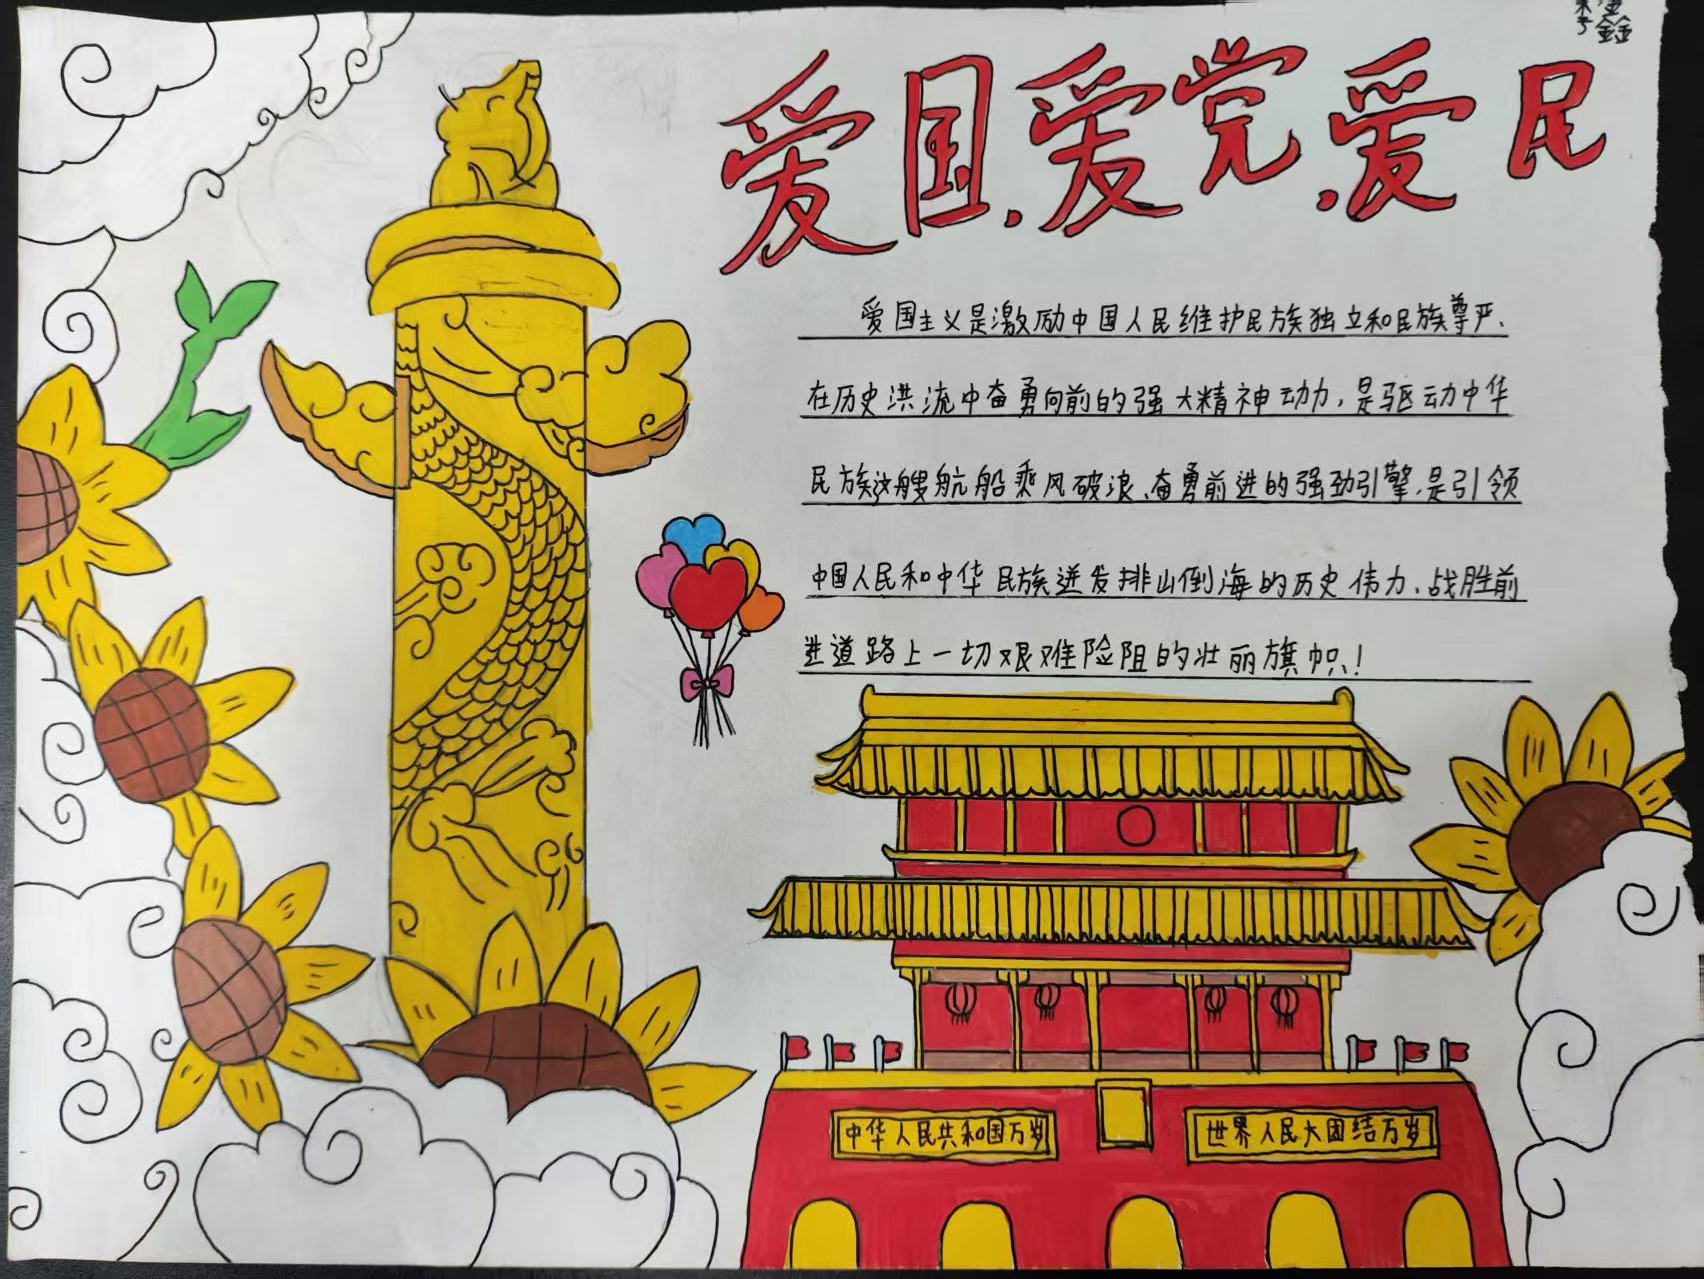 爱国、爱党、爱民
爱国主义是激励中国人民维护民族独立和民族尊严、
在历史洪流中奋勇向前的强大精神动力，是驱动中华
民族这艘航船乘风破浪、奋勇前进的强劲引擎，是引领
中国人民和中华民族迸发排山倒海的历史伟力、战胜前
进道路上一切艰难险阻的壮丽旗帜！
中华人民共和国万岁
世界人民大团结万岁